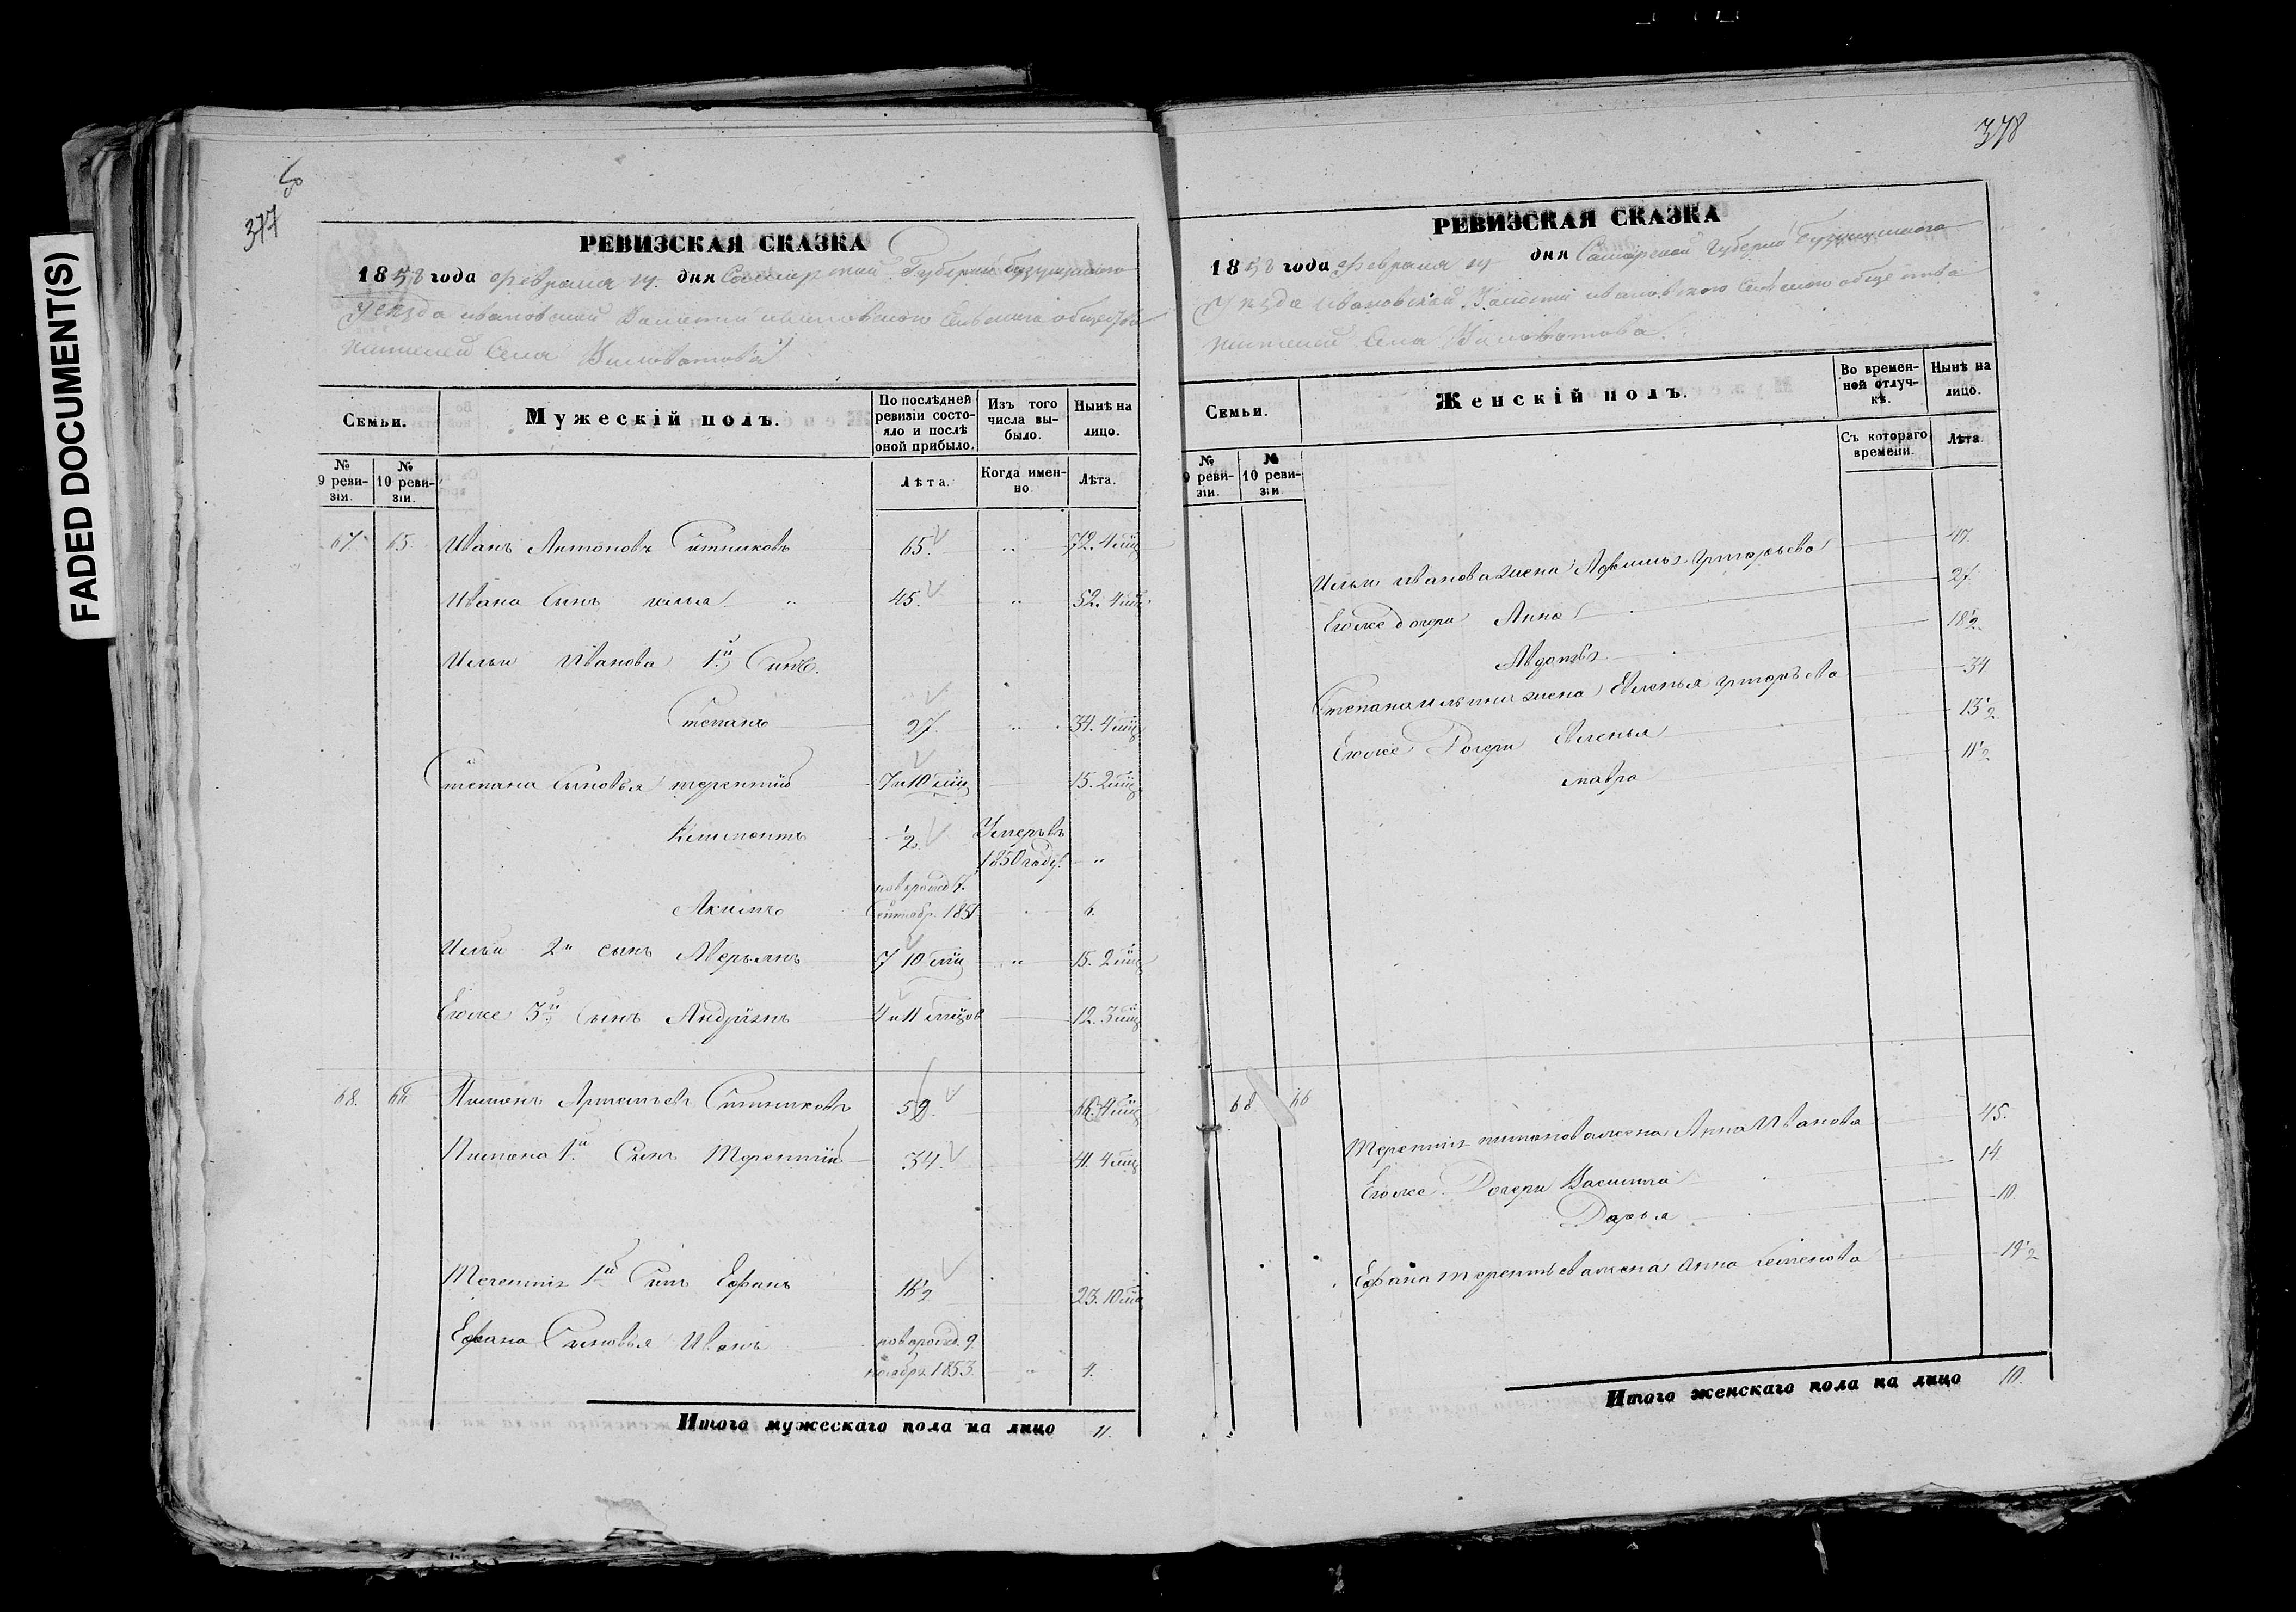 FADED DOCUMENT(S)
377
РЕВИЗСКАЯ СКАЗКА
1858 года Февраля 14 дня Самарской Губерніи Бузулукского
Уезда Ивановской Волости Ивановского Сельского общества
жителей Села Виловатова
Семьи.
Мужескій полъ.
По послѣдней ревизіи состояло и послѣ оной прибыло.
Изъ того числа выбыло.
Нынѣ на лицо.
№ 9 ревизіи.
№ 10 ревизіи.
Лѣта.
Когда именно
Лѣта.
67. 65. Иванъ Антоновъ Ситниковъ 65. „ 72. 4 мѣц
Ивана Сынъ илья „ 45. „ 52. 4 мѣц
Ильи Иванова 1й Сынъ
Степанъ 27. „ 34. 4 мѣц
Степана Сыновья терентій 7 и 10 мѣц 15. 2 мѣц
Климонтъ 1/2 Умеръ въ
1850 году. „
новорожд 7.
Акимъ Сентябр. 1851 6.
Ильи 2й сынъ Мерьянъ 7 10 мѣц „ 15. 2 мѣц
Егоже 3й Сынъ Андріянъ 4 и 11 мѣцов 12. 3 мѣц
68. 66 Пимонъ Ситниковъ 59. 66. 4 мѣц
Пимона 1й Сынъ Терентій 34. 41. 4 мѣц
1й Сынъ Ефанъ 16 1/2 23. 10 мѣц
Ефана Сыновья Иванъ новорожд. 9
ноября 1853. „ 4.
Итого мужескаго пола на лицо 11.
378
РЕВИЗСКАЯ СКАЗКА
1858 года Февраля 14 дня Самарской Губерніи Бузулукского
Уезда Ивановской Волости ивановского Сельского общества
жителей Села Виловатова.
Семьи.
Женскій полъ.
Во временной отлучкѣ.
Нынѣ на лицо.
№ 9 ревизіи.
№ 10 ревизіи
Съ котораго времени.
Лѣта.
Ильи иванова жена Григорьева 47.
Егоже дочери Анна 27.
Авдотья 18 1/2.
Степана ильина жена Евленья григорьева 34
Егоже Дочери Евленья 13 1/2
мавра 11 1/2
68 66
Терентія пимонова жена Анна Иванова 45.
Егоже Дочери Василиса 14
Дарья 10.
Ефана терентьева жена Анна Семенова 19 1/2
Итого женскаго пола на лицо 10.